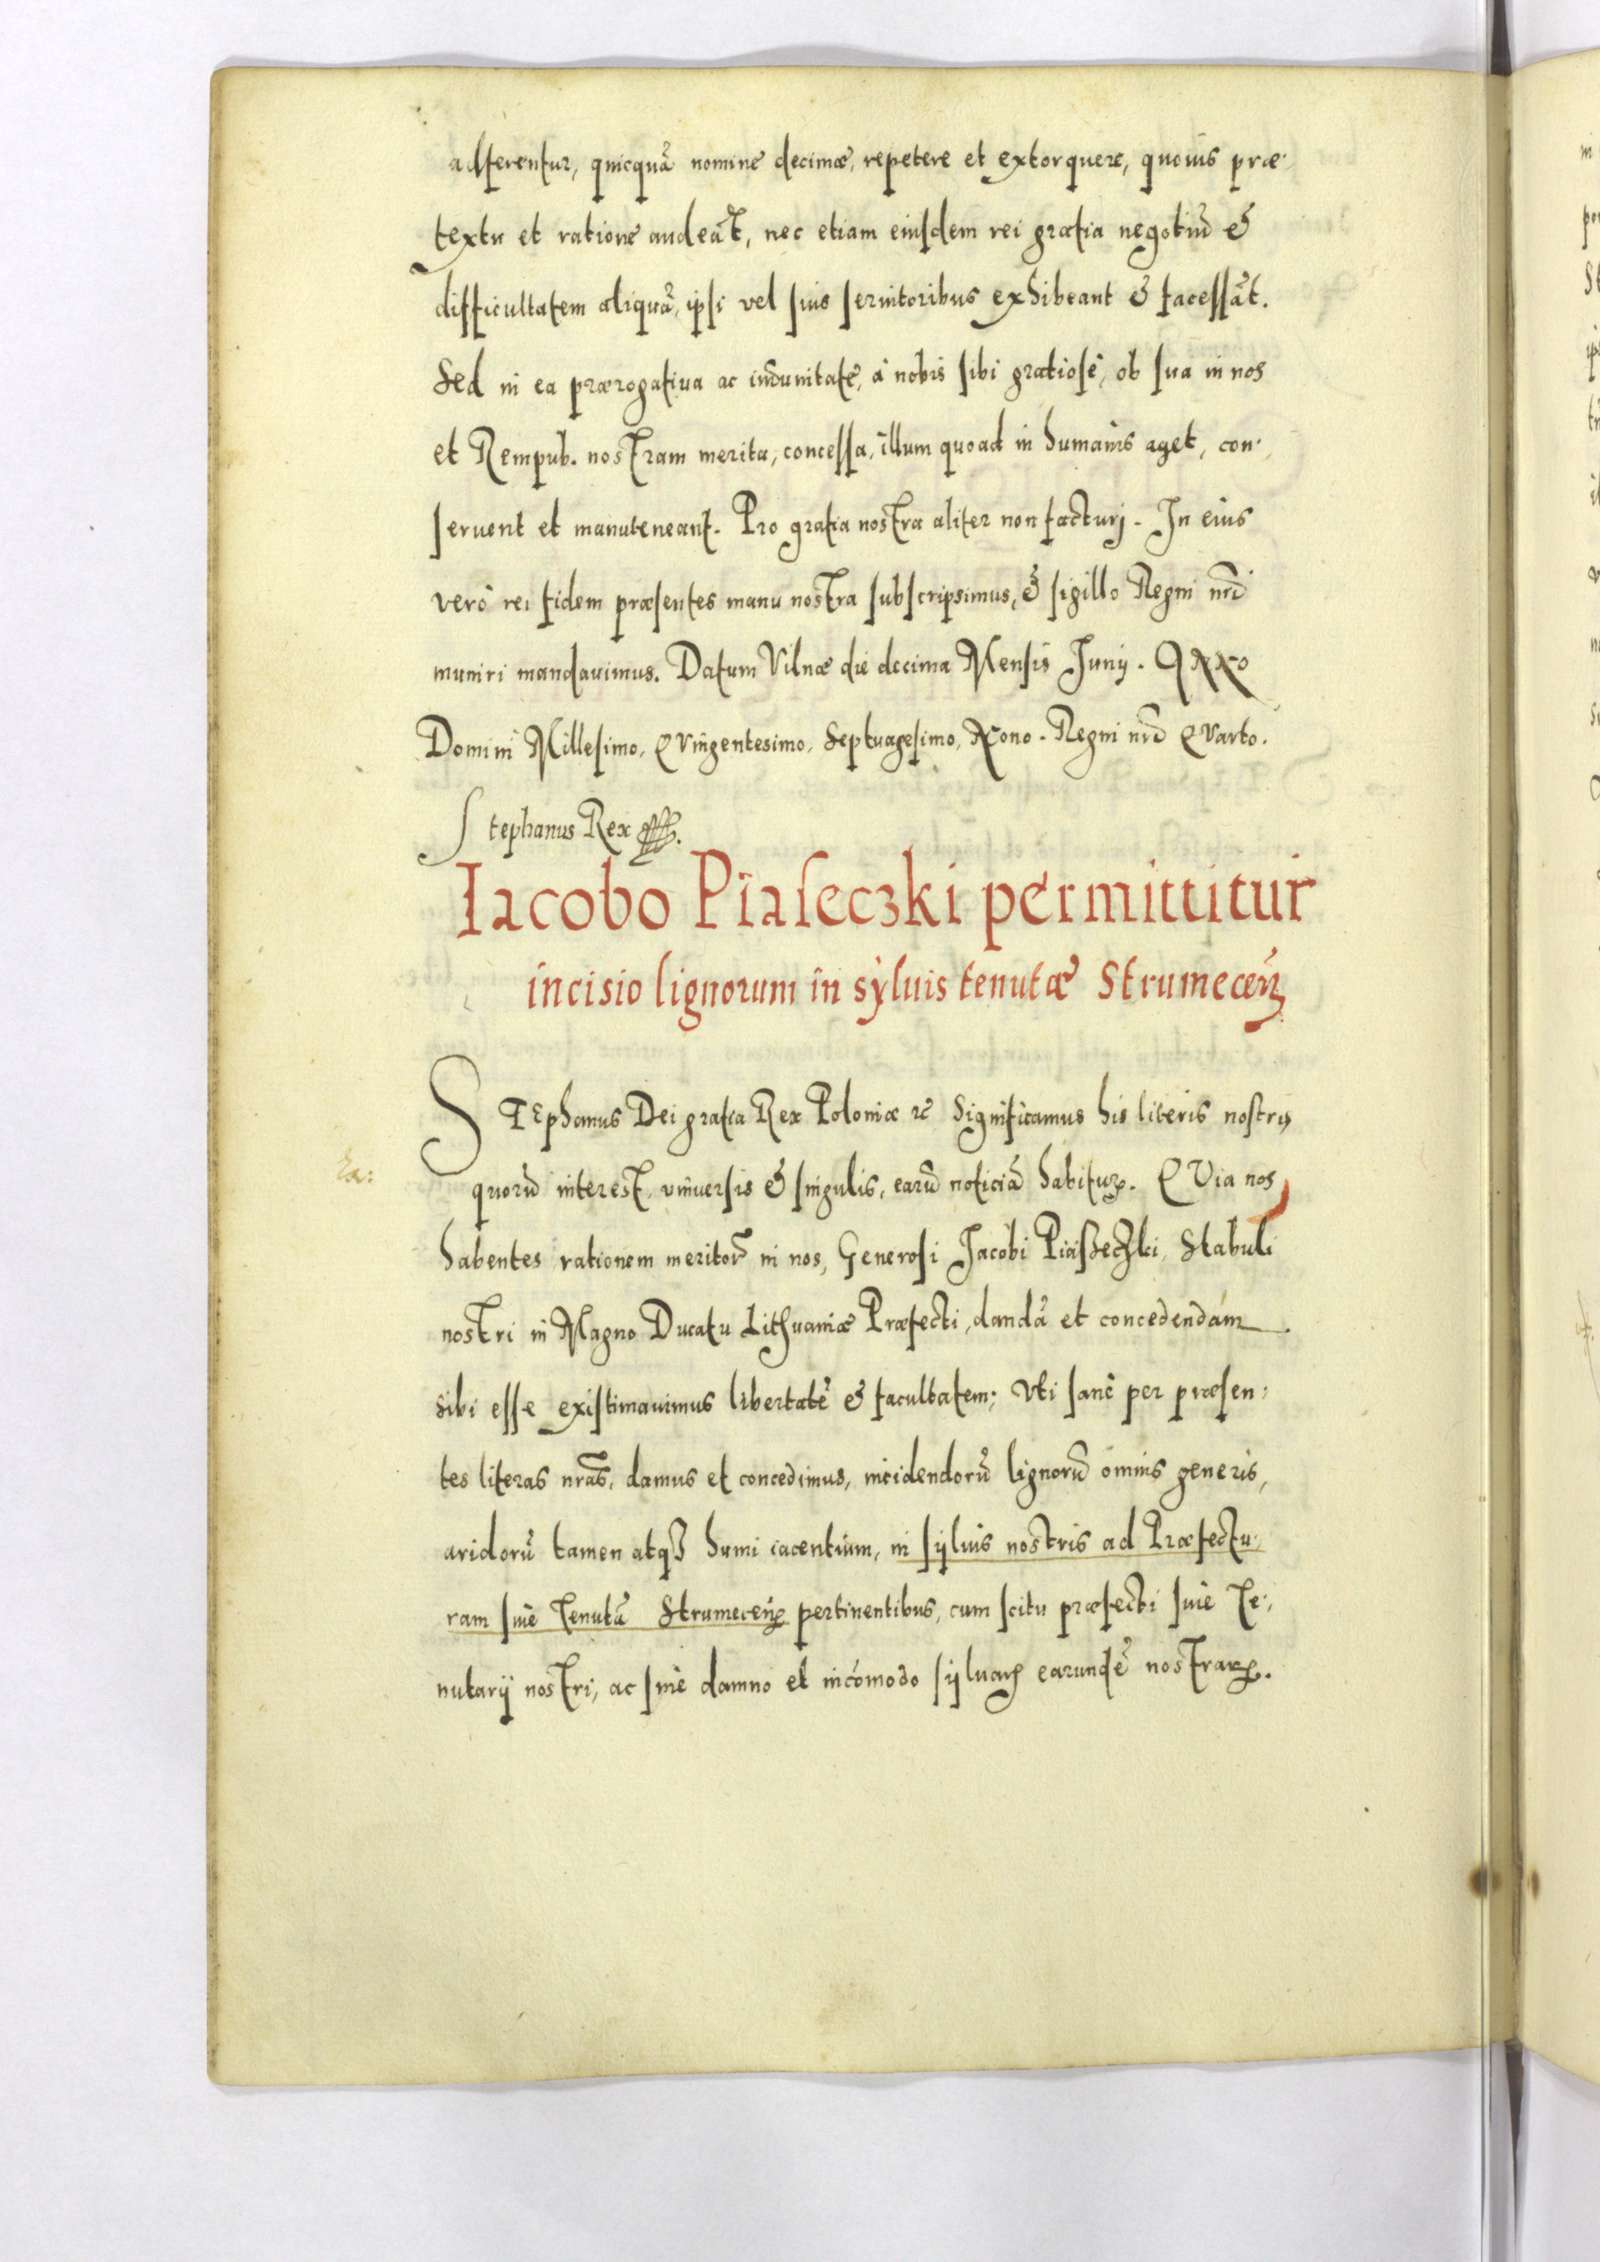 adferentur, quicquã nomine decimæ, repetere et extorquere, quouis præ-
textu et ratione audeãt, nec etiam eiusdem rei gratia negotiũ &
difficultatem aliquã, ipsi vel suis seruitoribus exhibeant & facessãt.
Sed in ea prærogatiua ac im̃unitatẽ, à nobis sibi gratiosè, ob sua in nos
et Rempub. nostram merita, concessa, illum quoad in humanis aget, con-
seruent et manuteneant. Pro gratia nostra aliter non facturj. In eius
verò rei fidem præsentes manu nostra subscripsimus, & sigillo Regni nrĩ
muniri mandauimus. Datum Vilnæ die decima Mensis Junij. Anno
Domini Millesimo, Quingentesimo, Septuagesimo, Nono. Regni nrĩ Quarto.
Stephanus Rex
Iacobo Piaseczki permittitur
incisio lignorum in syluis tenutæ Strumeceñ
STEphanus Dei gratia Rex Poloniæ &c Significamus his literis nostris
quorũ interest, vniuersis & singulis, earũ noticiã habituꝝ. QVia nos
habentes rationem meritorũ in nos, Generosi Jacobi Piaseczki, Stabuli
nostri in Magno Ducatu Lithuaniæ Præfecti, dandã et concedendam
sibi esse existimauimus libertatẽ & facultatem; Vti sanè per præsen-
tes literas nrãs, damus et concedimus, incidendorũ lignorũ omnis generis,
aridorũ tamen atqꝫ humi iacentium, in syluis nostris ad Præfectu-
ram siue Tenutã Strumeceñ pertinentibus, cum scitu præfecti siue Te-
nutarij nostri, ac sine damno et incõmodo syluaꝝ earundẽ nostraꝝ.